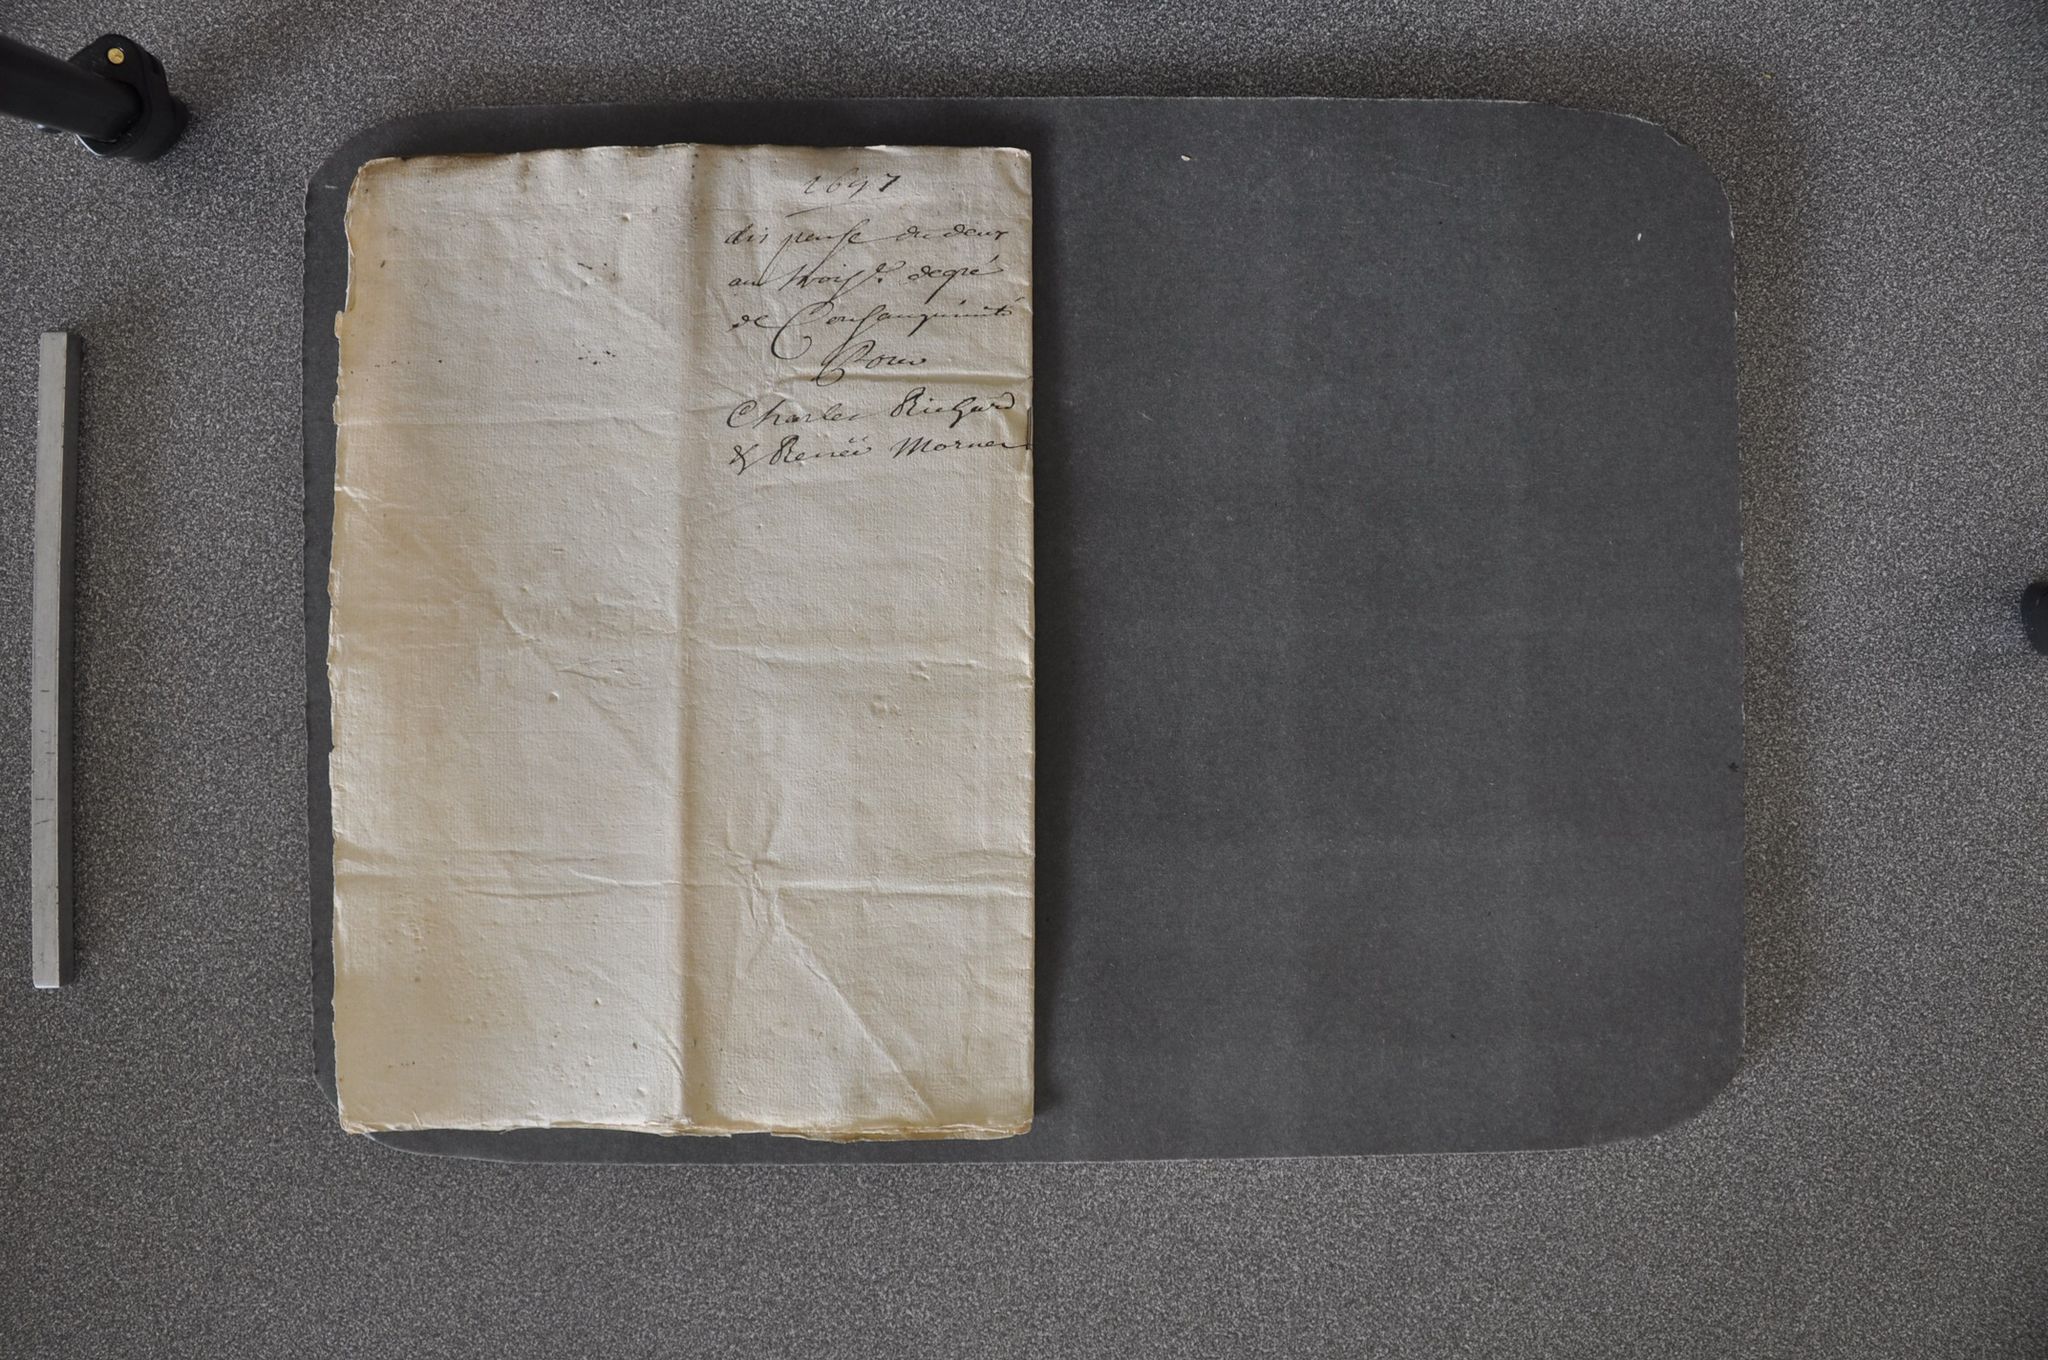 1697
dis pense du deux
au trois.e degré
de Consanguinité
Pour
Charles Richard
& Renée Morner